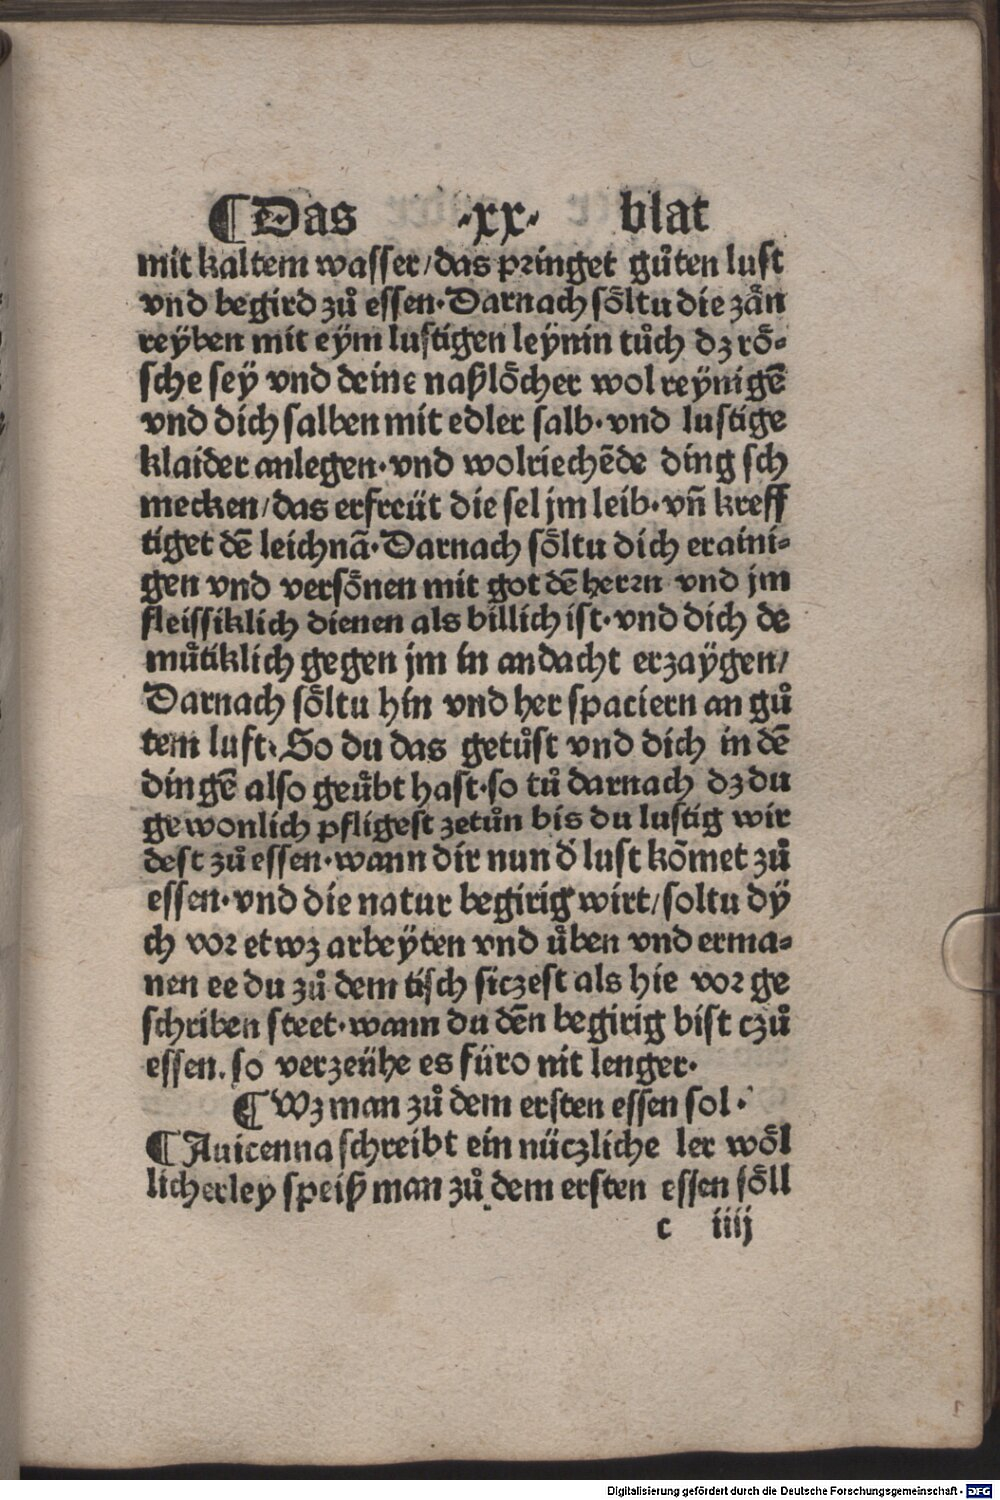 ¶Das ·xx· blat
mit kaltem wasser/das pringet gůten lust
vnd begird zů essen·Darnach sőltu die zån
reÿben mit eÿm lustigen leÿnin tůch dz rő⸗
sche seÿ vnd deine naßlőcher wol reÿnigē
vnd dich salben mit edler salb·vnd lustige
klaider anlegen·vnd wolriechēde ding sch
mecken/das erfreüt die sel jm leib·vñ kreff
tiget dē leichnā·Darnach sőltu dich eraini⸗
gen vnd versőnen mit got dē herrn vnd jm
fleissiklich dienen als billich ist·vnd dich de
můtiklich gegen jm in andacht erzaÿgen/
Darnach sőltu hin vnd her spaciern an gů
tem luft·So du das getůst vnd dich in dē
dingē also geůbt hast·so tů darnach dz du
gewonlich pfligest zetůn bis du lustig wir
dest zů essen·wann dir nun d̕ lust kōmet zů
essen·vnd die natur begirig wirt/soltu dÿ
ch vor etwz arbeÿten vnd ůben vnd erma⸗
nen ee du zů dem tisch siczest als hie vor ge
schriben steet·wann du dēn begirig bist czů
essen.so verzeühe es füro nit lenger·
¶Wz man zů dem ersten essen sol·
¶Auicenna schreibt ein nüczliche ler wől
licherley speiß man zů dem ersten essen sőll
c iiij
Digitalisierung gefördert durch die Deutsche Forschungsgemeinschaft · DFG